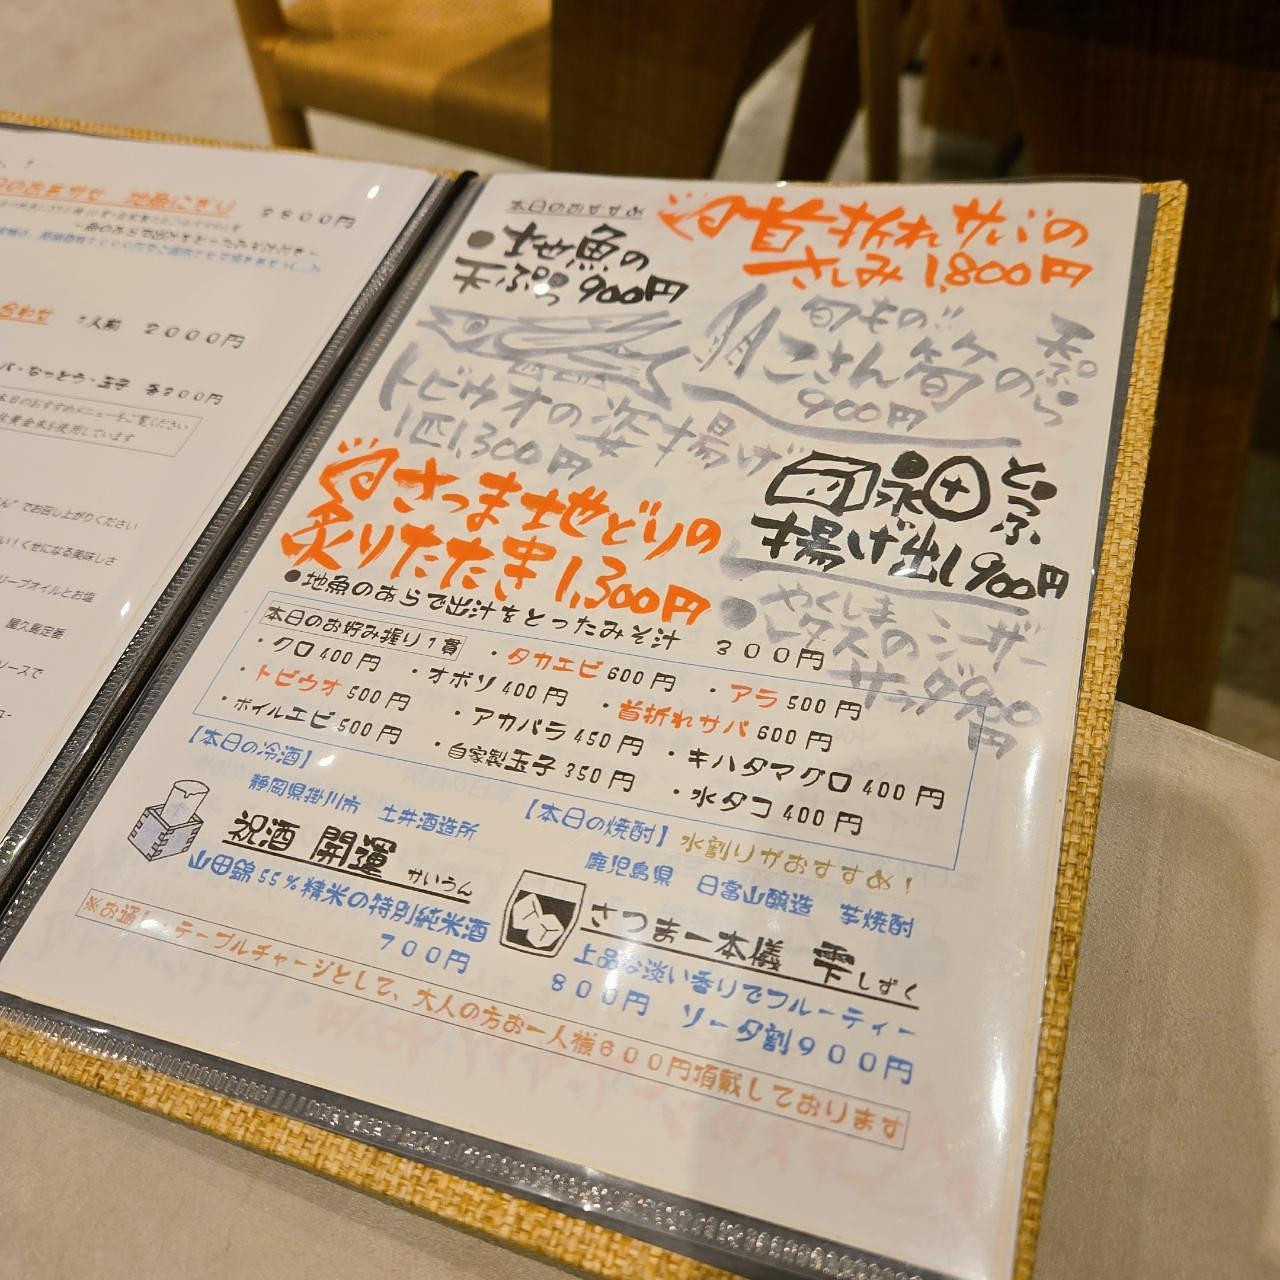 地魚にぎり
円
1人前 2000円
なっとう・玉子 各200円
本日のおすすめメニューをご覧ください
を使用しています
でお召し上がりください
い!くせになる美味しさ
リーブオイルとお塩
屋久島定番
ソースで
本日のおすすめ
首折れサバの
さしみ 1,800円
●地魚の
天ぷら 900円
旬もの!!
こさん筍の
天ぷら
900円
トビウオの姿揚げ
1匹1,300円
さつま地どりの
炙りたたき 1,300円
永田
とうふ
揚げ出し900円
●地魚のあらで出汁をとったみそ汁 300円
やくしま
レタスのシーザー
サラダ900円
本日のお好み握り1貫
・クロ400円
・タカエビ600円
・アラ500円
・トビウオ500円
・オボソ400円
・首折れサバ600円
・ボイルエビ500円
・アカバラ450円
・キハダマグロ400円
・自家製玉子350円
・水タコ400円
【本日の冷酒】
静岡県掛川市 土井酒造所
祝酒 開運 かいうん
山田錦55%精米の特別純米酒
700円
【本日の焼酎】水割りがおすすめ!
鹿児島県 日當山醸造 芋焼酎
さつま一本儀 雫しずく
上品な淡い香りでフルーティー
800円 ソーダ割900円
※お通し・テーブルチャージとして、大人の方お一人様600円頂戴しております